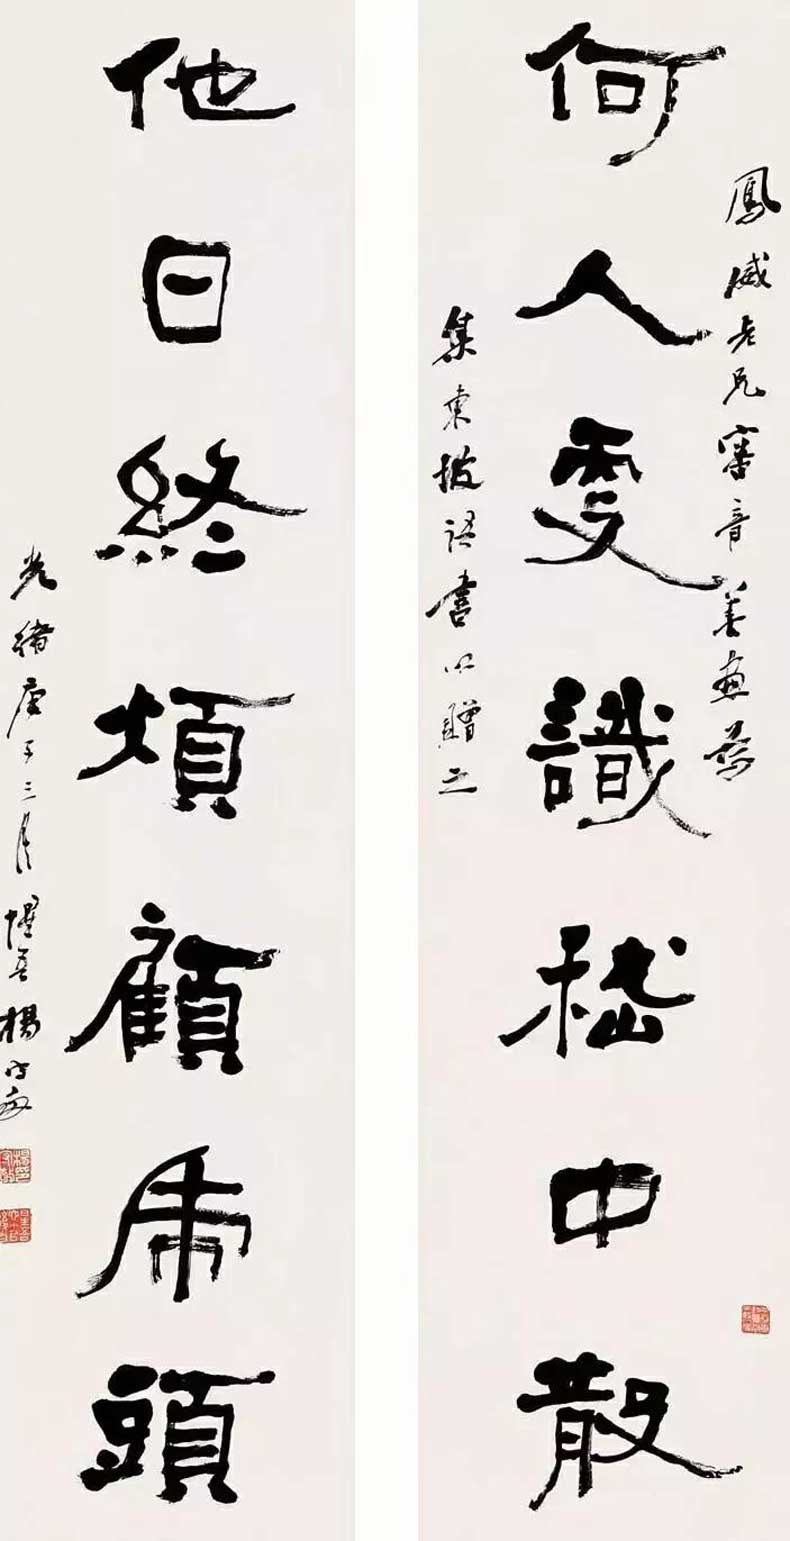 鳳威老兄審音善畫為
何人更識嵇中散
集東坡語書以贈之
他日終煩顧虎頭
光緒庚子三月惺吾楊守敬